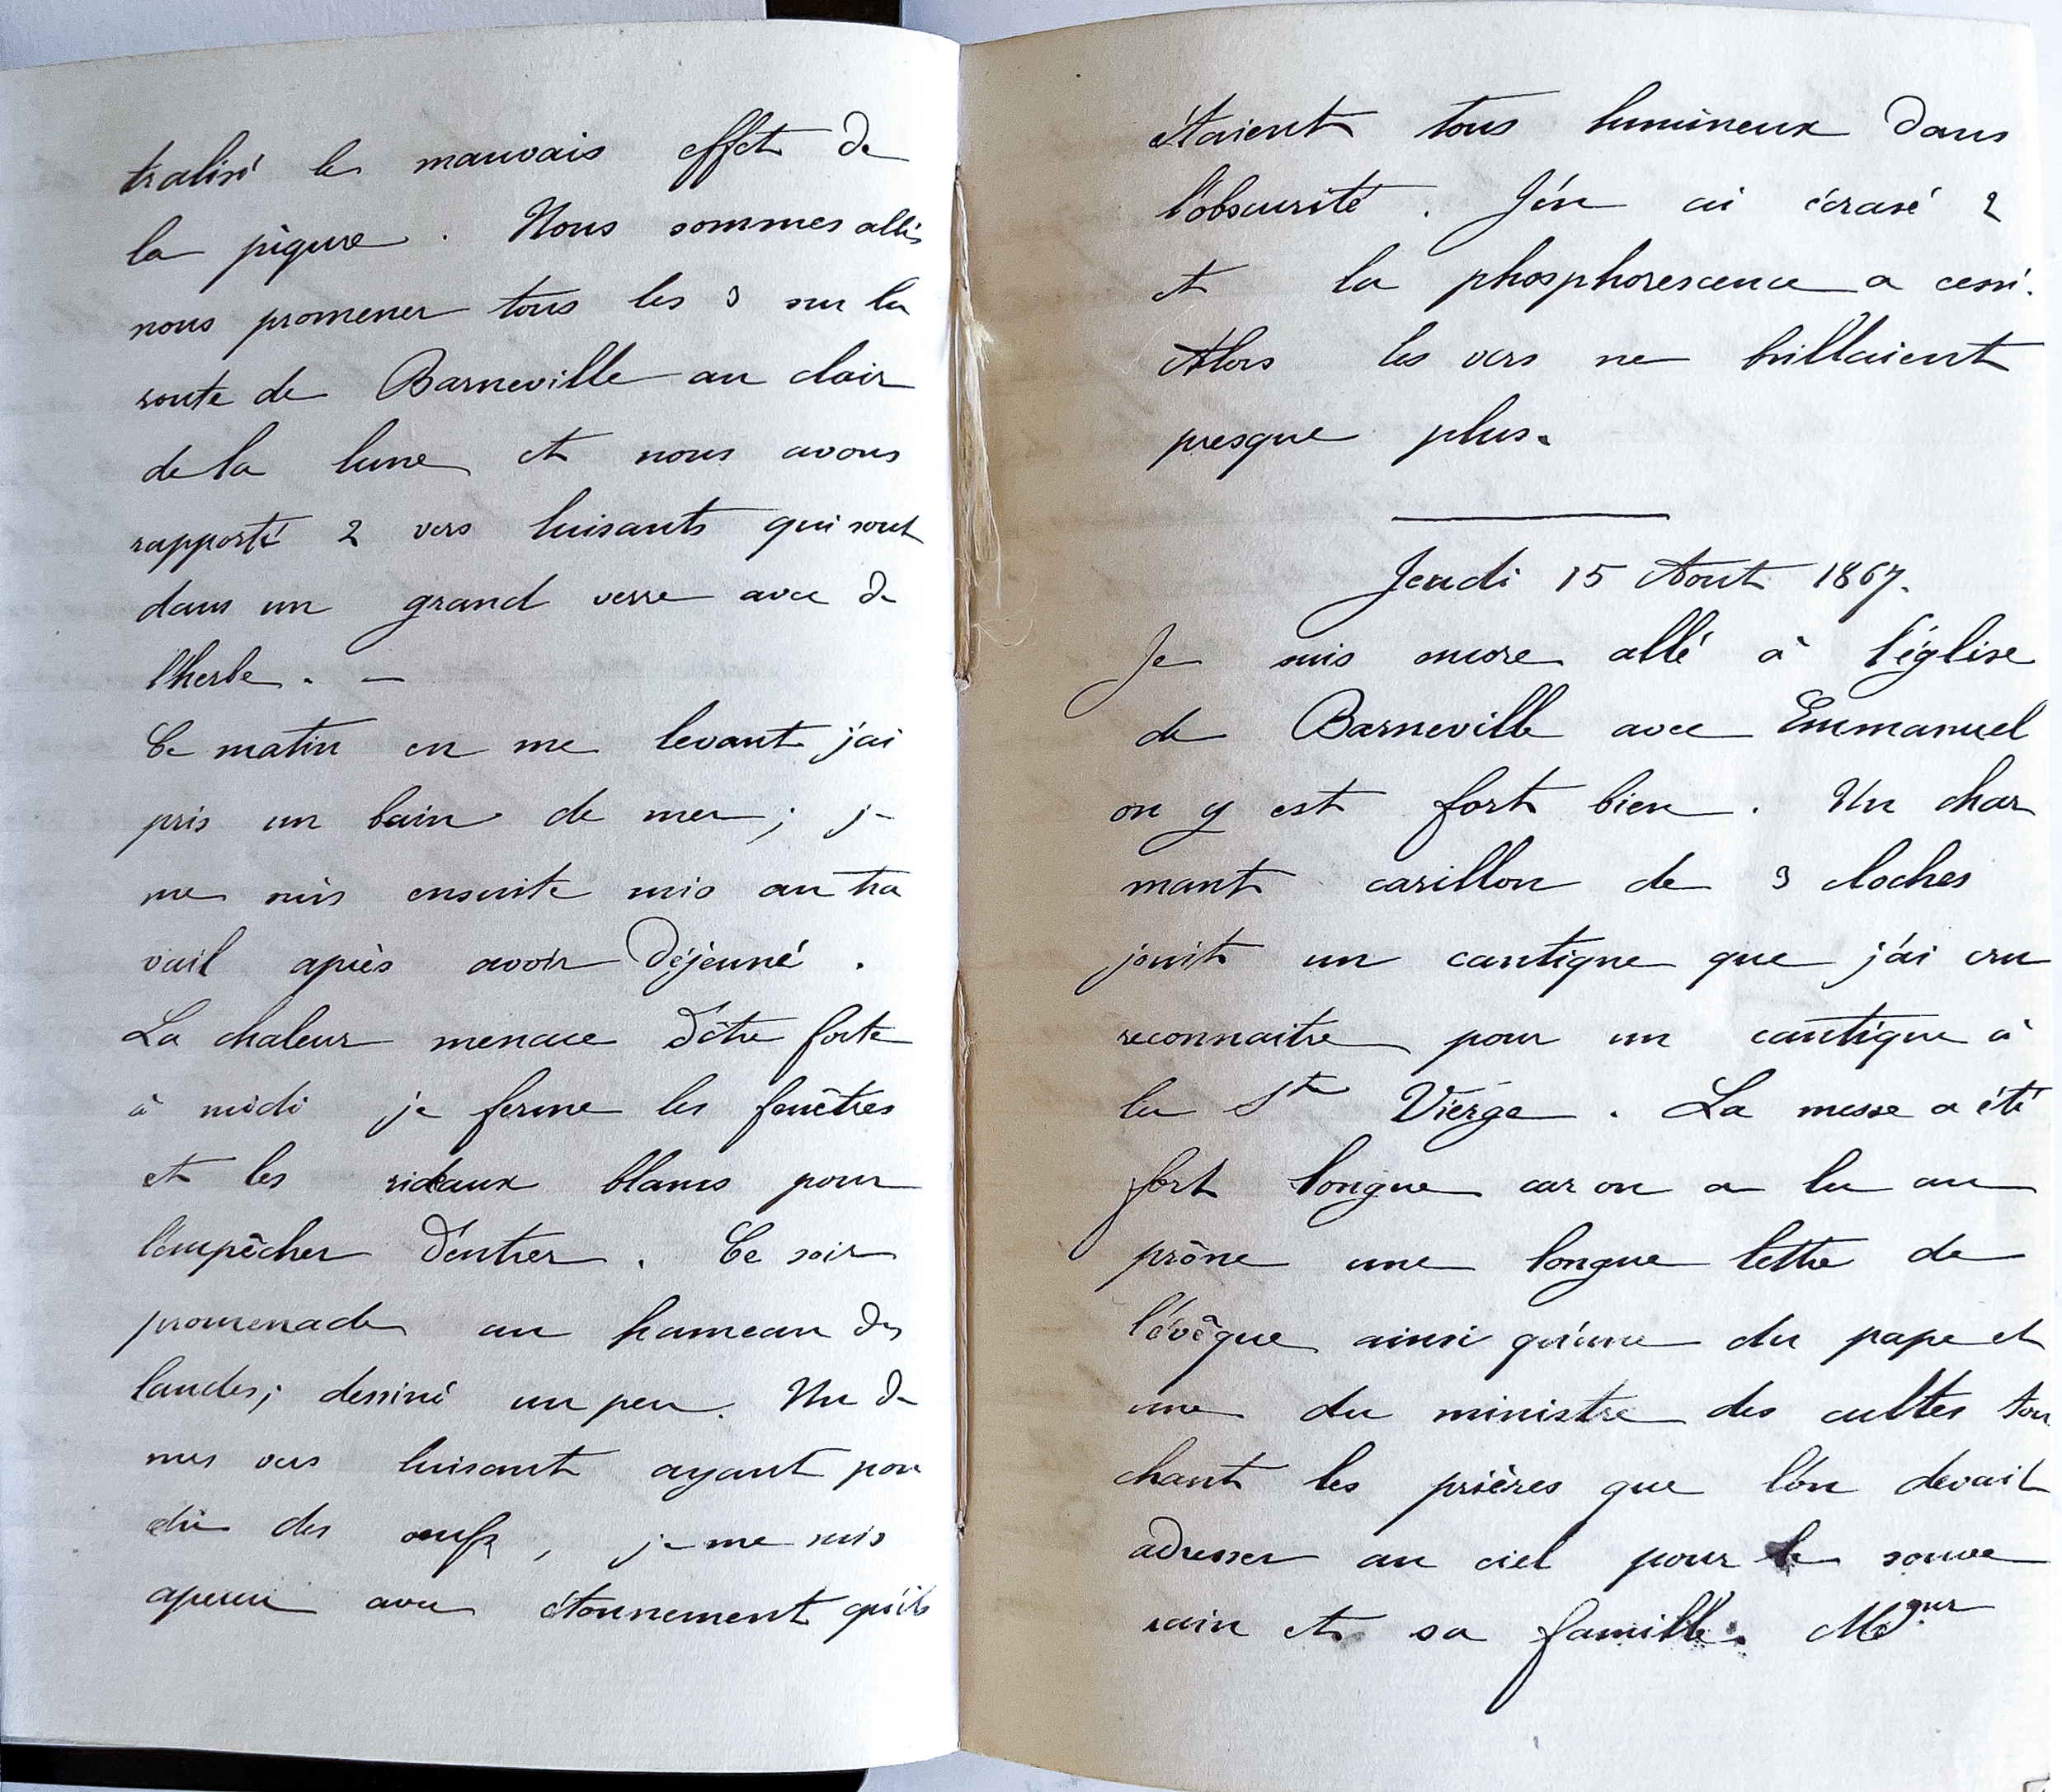 tralisé le mauvais effet de
la piqure. Nous sommes allés
nous promener tous les 3 sur la
route de Barneville au clair
de la lune et nous avons
rapporté 2 vers luisants qui sont
dans un grand verre avec de
l'herbe. —
Ce matin en me levant j'ai
pris un bain de mer ; je
me suis ensuite mis au tra
vail après avoir déjeuné.
La chaleur menace d'être forte
à midi je ferme les fenêtres
et les rideaux blancs pour
l'empêcher d'entrer. Ce soir
promenade au hameau des
landes; dessiné un peu. Un de
mes vers luisant ayant pon
du des œufs, je me suis
apercu avec étonnement qu'ils
étaient tous lumineux dans
l'obscurité. J'en ai écrasé 2
et la phosphorescence a cessé.
Alors les vers ne brillaient
presque plus.
Jeudi 15 Aout 1867.
Je suis encore allé à l'église
de Barneville avec Emmanuel
on y est fort bien. Un char
mant carillon de 3 cloches
jouit un cantique que j'ai cru
reconnaitre pour un cantique à
la Ste Vierge. La messe a été
fort longue car on a lu au
prône une longue lettre de
l'évêque ainsi qu'une du pape et
une du ministre des cultes tou
chant les prières que l'on devait
adresser au ciel pour le souve
rain et sa famille. Mgur